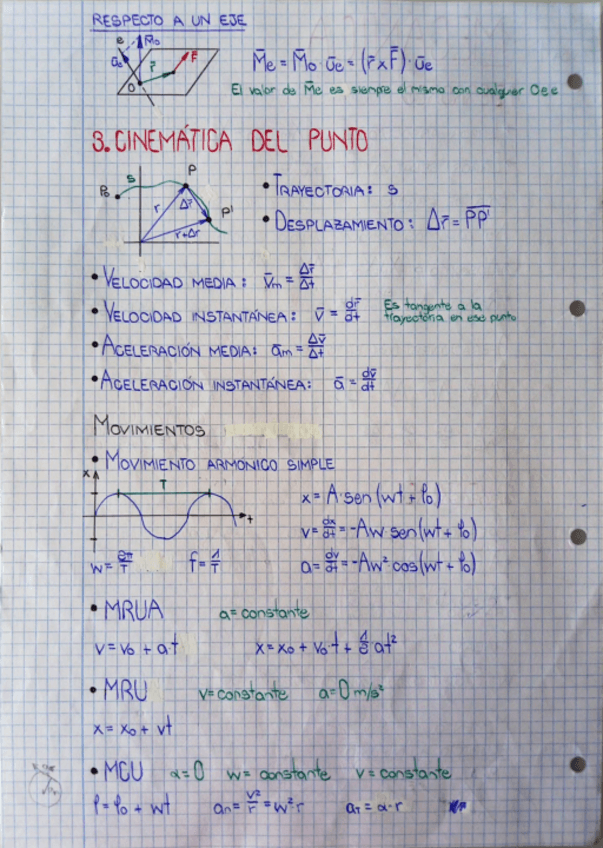 RESPECTO A UN EJE
e M̄o
ūe r̄ F̄
O
M̄e = M̄o · ūe = (r̄ x F̄) · ūe
El valor de M̄e es siempre el mismo con cualquier O∈e
3. CINEMÁTICA DEL PUNTO
Po S P
r Δr̄ P'
r+Δr
• TRAYECTORIA: s
• DESPLAZAMIENTO: Δr̄ = PP'
• VELOCIDAD MEDIA: v̄m = Δr̄/Δt
• VELOCIDAD INSTANTÁNEA: v̄ = dr̄/dt Es tangente a la
trayectoria en ese punto
• ACELERACIÓN MEDIA: ām = Δv̄/Δt
• ACELERACIÓN INSTANTÁNEA: ā = dv̄/dt
MOVIMIENTOS
• MOVIMIENTO ARMÓNICO SIMPLE
x T t
x = A·sen(wt + φo)
v = dx/dt = -Aw·sen(wt + φo)
w = 2π/T f = 1/T a = dv/dt = -Aw²·cos(wt + φo)
• MRUA a = constante
v = vo + a·t x = xo + vo·t + 1/2 at²
• MRU v = constante a = 0 m/s²
x = xo + vt
• MCU α = 0 w = constante v = constante
φ = φo + wt an = v²/r = w²r aT = α·r